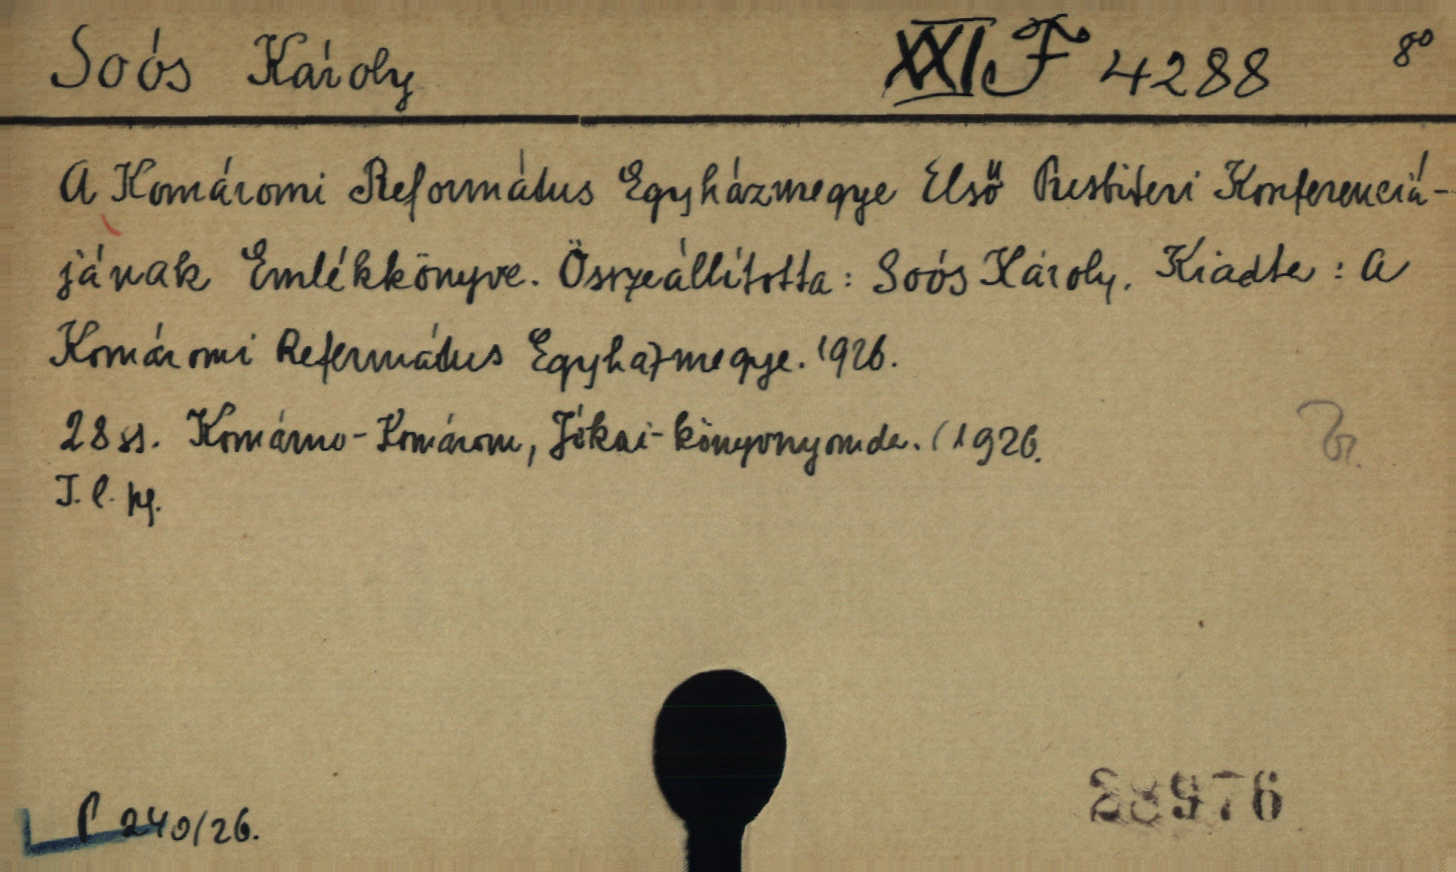 Soós Károly XXI F 4288 8°
A Komáromi Református Egyházmegye Első Presbiteri Konferenciá-
jának Emlékkönyve. Összeállította: Soós Károly. Kiadta: A
Komáromi Református Egyházmegye. 1926.
28 ss. Komárno-Komárom, Jókai-könyvnyomda. (1926.
T. l.
P 240/26.
28976